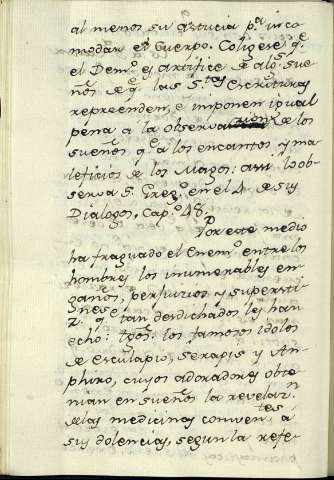 al menos su astucia p.ª inco
modar el Cuerpo. Colígese q.e
el Dem.º es artifice de alg.s sue
ños de q.e las S.tas Escrituras
reprenden, e imponen igual
pena a la observacion de los
sueños q.e a los encantos y ma
leficios de los Magos: assi lo ob-
serva S. Greg.º en el 4. de sus
Dialogos, Cap.º 48.
Por este medio
ha fraguado el Enem.º entre los
hombres los inumerables en-
gaños, perjuicios y superstì
ciones q.e tan desdichados les han
echo: tgos. los famosos idolos
de Esculapio, Serapis y An-
phiro, cuyos adoradores obte-
nian en sueños la revelaz.n
de las medicinas conven.tes á
sus dolencias, segun la refe-